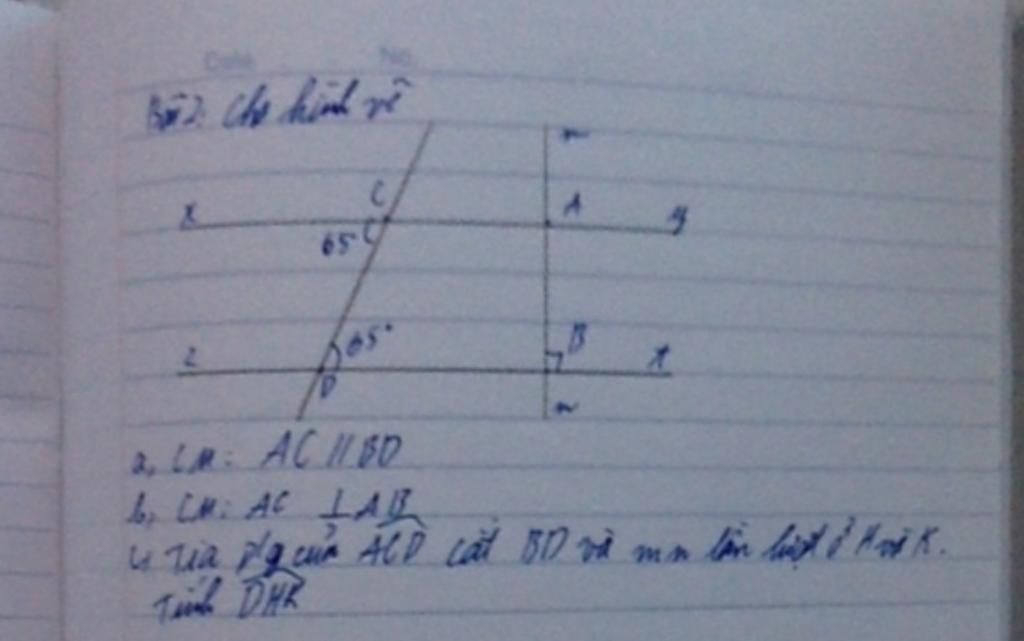 Date No
Bài 2: Cho hình vẽ
m
C A
x y
65°
65° B
z t
D
n
a, CM: AC // BD
b, CM: AC ⊥ AB
c, Tia p/g của ACD cắt BD và mn lần lượt ở H và K.
Tính DHK